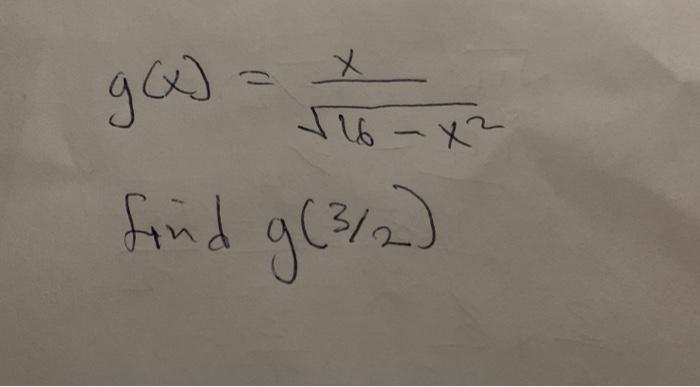 g(x) = x / √16 - x²
find g(3/2)